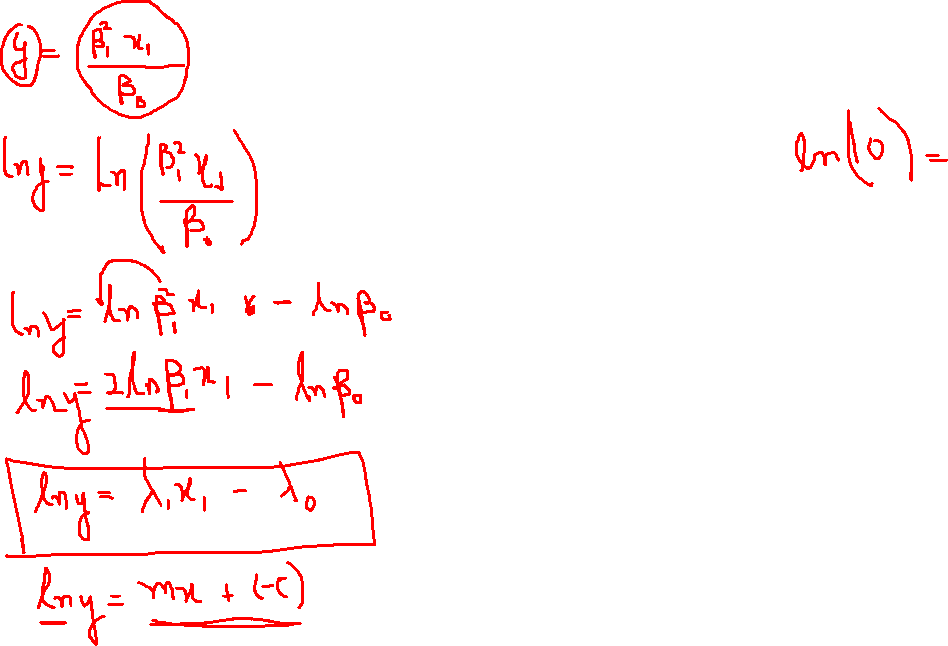 y = β₁² x₁ / β₀
ln y = ln (β₁² x₁ / β₀)
ln(0) =
ln y = ln β₁² x₁ - ln β₀
ln y = 2 ln β₁ x₁ - ln β₀
ln y = λ₁ x₁ - λ₀
ln y = mx + (-c)